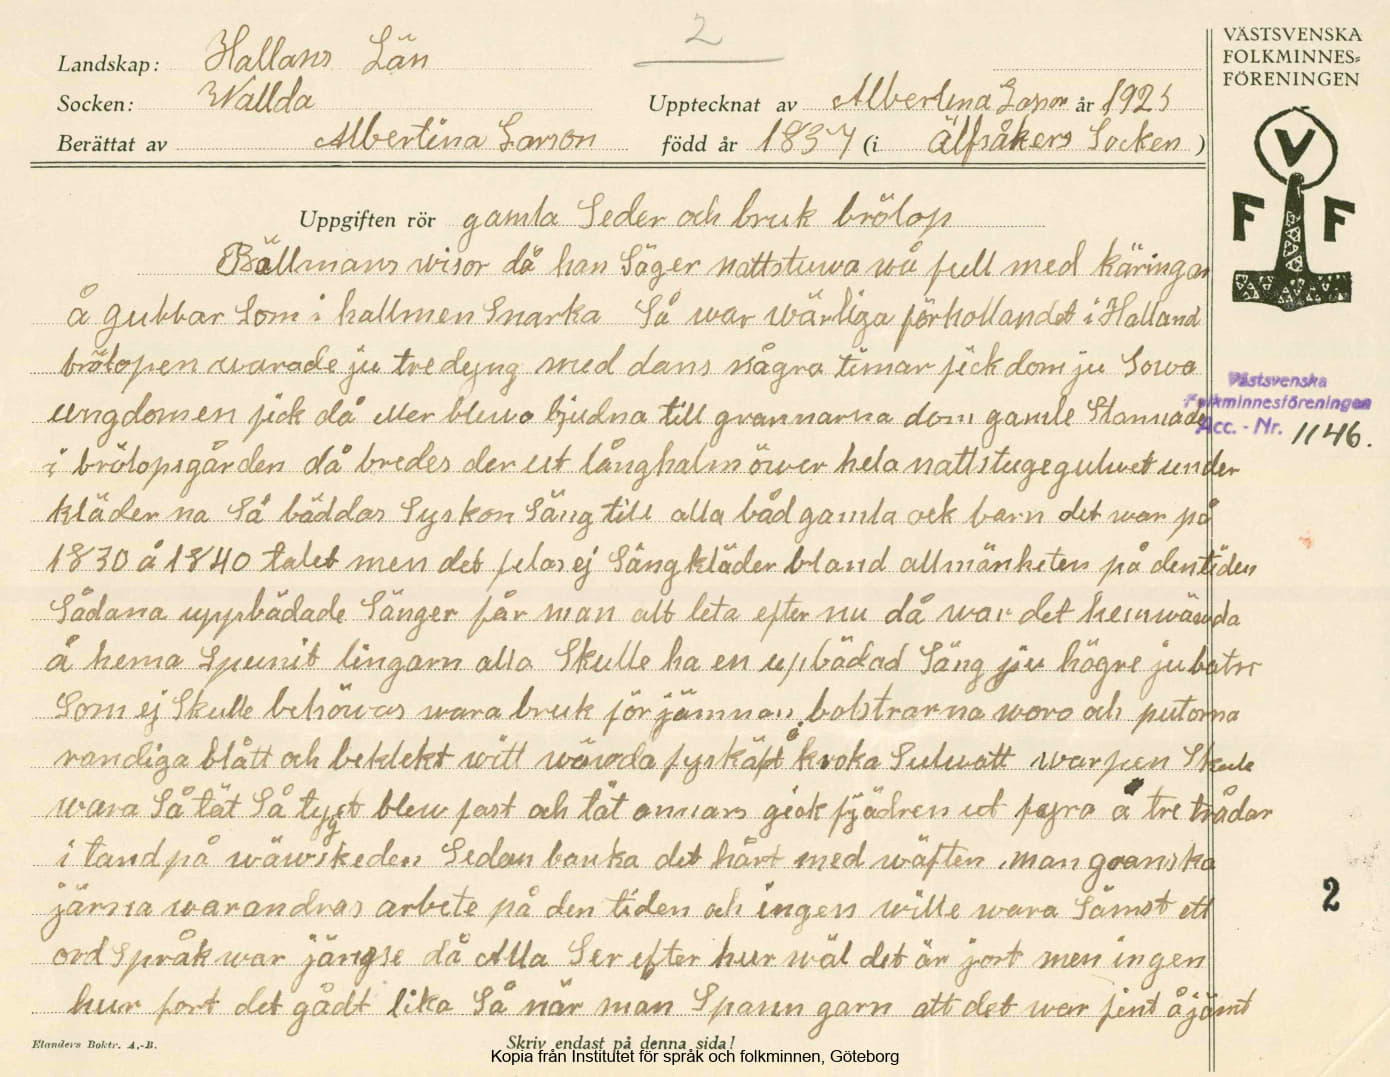 2
VÄSTSVENSKA
FOLKMINNES=
FÖRENINGEN
Landskap: Hallans Län
Socken: Wallda
Upptecknat av Albertina Larson år 1925
Berättat av Albertina Larson född år 1837 (i Älfsåkers Socken )
V
F F
Uppgiften rör gamla Seder och bruk brölop
Bällmans wisor då han Säger nattstuwa wa full med käringar
å gubbar Som i hallmen Snarka Så war wärliga förhollandet i Halland
brölopen warade ju tre dyng med dans några timar fick dom ju Sowa
ungdomen fick då eller blewo bjudna till grannarna dom gamle Stannade
i brölopsgården då bredes der ut långhalm öwer hela nattstugegulwet under
kläder na Så bäddas Syskon Säng till alla båd gamla ock barn det war på
1830 å 1840 talet men det felas ej Sängkläder bland allmänheten på den tiden
Sådana uppbädade Sänger får man alt leta efter nu då war det hemwäwda
å hema Spunit lingarn alla Skulle ha en upbädad Säng ju högre ju batre
Som ej Skulle behöwas wara bruk för jämnan, bolstrarna woro och putorna
randiga blått och beklekt witt wäwda fyskäft å kroka Sulwatt warpen Skule
wara Så tät Så tyget blew fast och tät annars gick fjädren ut fyra å tre trådar
i tand på wäwskeden Sedan banka det hårt med wäften man granska
järna warandras arbete på den tiden och ingen wille wara Sämst ett
ord Språk war jängse då Alla Ser efter hur wäl det är jort men ingen
hur fort det gådt lika Så när man Spann garn att det war fint å jämt
Västsvenska
Folkminnesföreningen
Acc. - Nr. 1146.
2
Elanders Boktr. A.-B.
Skriv endast på denna sida!
Kopia från Institutet för språk och folkminnen, Göteborg